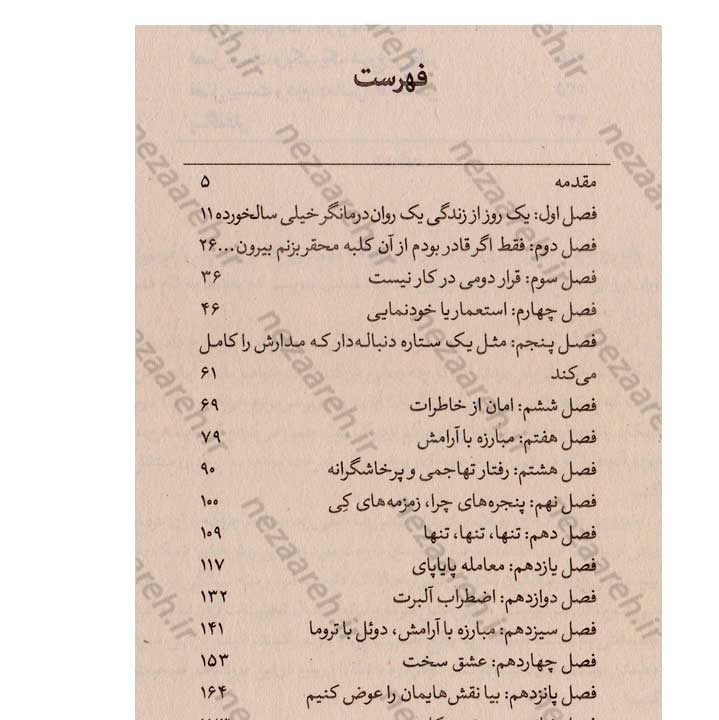 فهرست
مقدمه ۵
فصل اول: یک روز از زندگی یک روان‌درمانگر خیلی سالخورده ۱۱
فصل دوم: فقط اگر قادر بودم از آن کلبه محقر بزنم بیرون... ۲۶
فصل سوم: قرار دومی در کار نیست ۳۶
فصل چهارم: استعمار یا خودنمایی ۴۶
فصل پنجم: مثل یک ستاره دنباله‌دار که مدارش را کامل
می‌کند ۶۱
فصل ششم: امان از خاطرات ۶۹
فصل هفتم: مبارزه با آرامش ۷۹
فصل هشتم: رفتار تهاجمی و پرخاشگرانه ۹۰
فصل نهم: پنجره‌های چرا، زمزمه‌های کِی ۱۰۰
فصل دهم: تنها، تنها، تنها ۱۰۹
فصل یازدهم: معامله پایاپای ۱۱۷
فصل دوازدهم: اضطراب آلبرت ۱۳۲
فصل سیزدهم: مبارزه با آرامش، دوئل با تروما ۱۴۱
فصل چهاردهم: عشق سخت ۱۵۳
فصل پانزدهم: بیا نقش‌هایمان را عوض کنیم ۱۶۴
nezaareh.ir